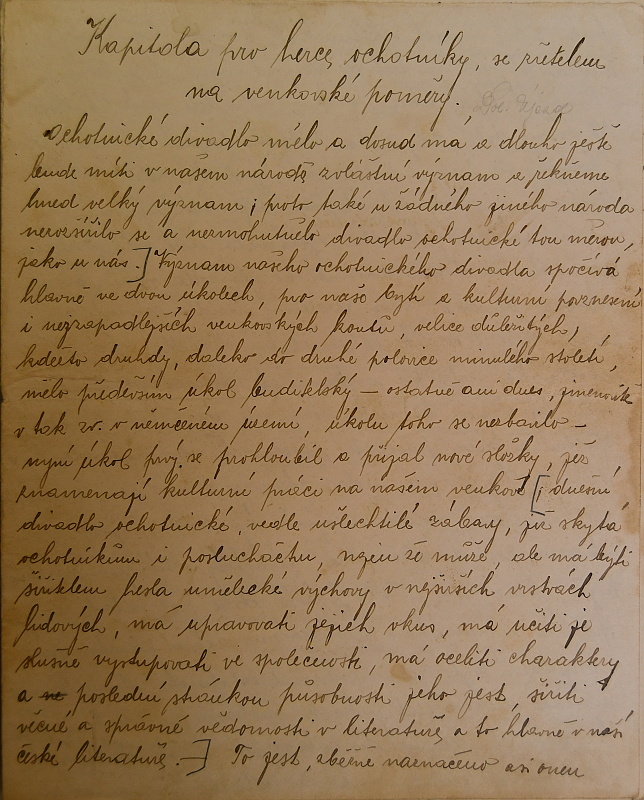 Kapitola pro herce ochotníky, se zřetelem
na venkovské poměry.
Ochotnické divadlo mělo a dosud má a dlouho ještě
bude míti v našem národě zvláštní význam a řekněme
hned velký význam; proto také u žádného jiného národa
nerozšířilo se a nezmohutnělo divadlo ochotnické tou měrou,
jako u nás.] Význam našeho ochotnického divadla spočívá
hlavně ve dvou úkolech, pro naše bytí a kulturní povznesení
i nejzapadlejších venkovských koutů, velice důležitých;
kdežto druhdy, daleko do druhé polovice minulého století,
mělo především úkol buditelský – ostatně ani dnes, jmenovitě
v tak zv. v němčeném území, úkolu toho se nezbavilo –
nyní úkol prvý se prohloubil a přijal nové složky, jež
znamenají kulturní práci na našem venkově [; dnešní
divadlo ochotnické, vedle ušlechtilé zábavy, již skytá
ochotníkům i posluchačstvu, nejen že může, ale má býti
šiřitelem hesla umělecké výchovy v nejširších vrstvách
lidových, má upravovati jejich vkus, má učiti je
slušně vystupovati ve společnosti, má oceliti charaktery
a poslední stránkou působnosti jeho jest, šířiti
věcné a správné vědomosti v literatuře a to hlavně v naší
české literatuře. –] To jest, zběžně naznačeno asi onen